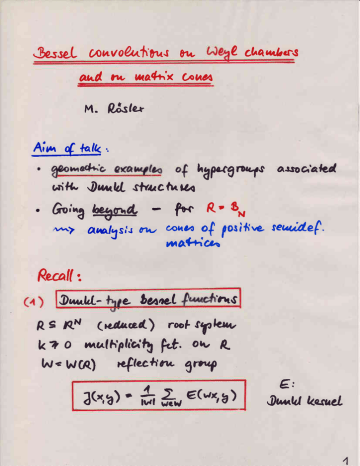 Bessel convolutions on Weyl chambers
and on matrix cones
M. Rösler
Aim of talk:
• geometric examples of hypergroups associated
with Dunkl structures
• Going beyond – for R = B_N
⇝ analysis on cones of positive semidef.
matrices
Recall:
(1) Dunkl-type Bessel functions
R ⊆ ℝ^N (reduced) root system
k ≥ 0 multiplicity fct. on R
W = W(R) reflection group
J(x,y) = 1/|W| Σ_{w∈W} E(wx,y)
E:
Dunkl kernel
1